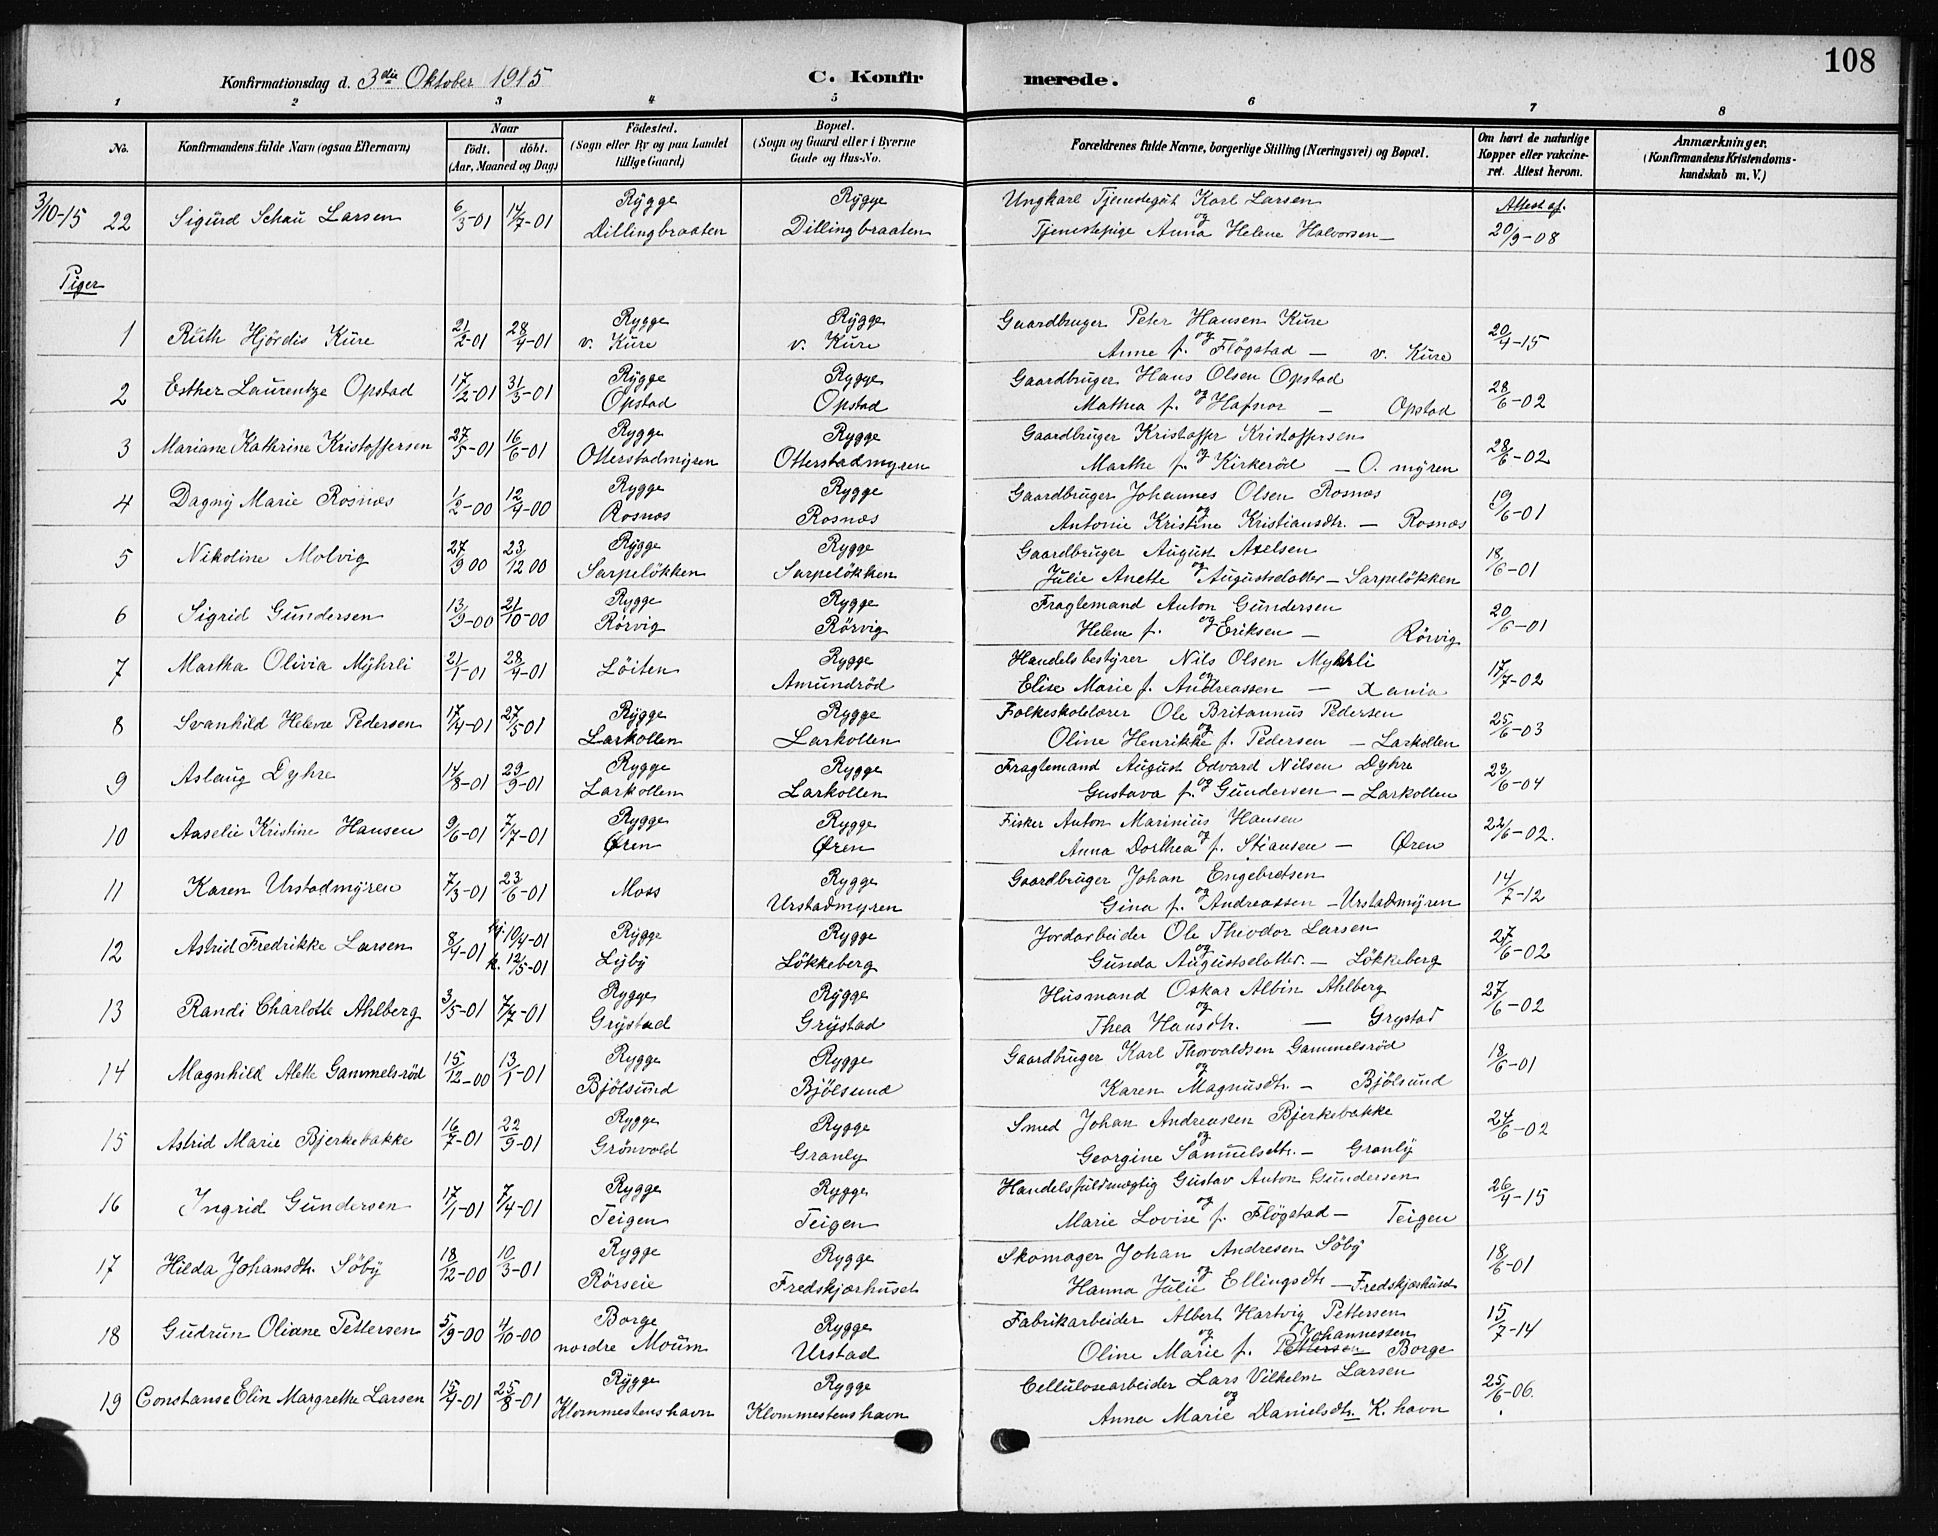 108
Konfirmationsdag d. 3die Oktober 1915 C. Konfirmerede.
1 2 3 4 5 6 7 8
No.
Konfirmandens fulde Navn (ogsaa Efternavn)
Naar
födt. döbt.
(Aar, Maaned og Dag)
Födested.
(Sogn eller By og paa Landet
tillige Gaard)
Bopæl.
(Sogn og Gaard eller i Byerne
Gade og Hus-No.
Forældrenes fulde Navne, borgerlige Stilling (Næringsvei) og Bopæl.
Om havt de naturlige
Kopper eller vakcine-
ret. Attest herom.
Anmærkninger.
(Konfirmandens Kristendoms-
kundskab m. V.)
3/10-15 22 Sigurd Schau Larsen 6/3-01 14/7-01 Rygge Rygge Ungkarl Tjenestegut Karl Larsen Attest af.
Dillingbraaten Dillingbraaten og Tjenestepige Anna Helene Halvorsen – 20/9-08
Piger
1 Ruth Hjördis Kure 21/2-01 28/4-01 Rygge Rygge Gaardbruger Peter Hansen Kure 20/4-15
v. Kure v. Kure og Anne f. Flögstad – v. Kure
2 Esther Laurentze Opstad 17/2-01 31/3-01 Rygge Rygge Gaardbruger Hans Olsen Opstad 28/6-02
Opstad Opstad og Mathea f. Hafnor – Opstad
3 Mariane Kathrine Kristoffersen 27/5-01 16/6-01 Rygge Rygge Gaardbruger Kristoffer Kristoffersen 28/6-02
Otterstadmyren Otterstadmyren og Marthe f. Kirkeröd – O. myren
4 Dagny Marie Rosnæs 1/2-00 12/4-00 Rygge Rygge Gaardbruger Johannes Olsen Rosnæs 19/6-01
Rosnæs Rosnæs og Antonie Kristine Kristiansdtr. – Rosnæs
5 Nikoline Molvig 27/9 00 23/12 00 Rygge Rygge Gaardbruger August Axelsen 18/6-01
Sarpelökken Sarpelökken og Julie Anette Augustsdatter – Sarpelökken
6 Sigrid Gundersen 13/9-00 21/10-00 Rygge Rygge Fragtemand Anton Gundersen 20/6-01
Rörvig Rörvig og Helene f. Eriksen – Rörvig
7 Martha Olivia Myhrli 21/1-01 28/4-01 Löiten Rygge Handelsbestyrer Nils Olsen Myhrli 17/7-02
Amundröd og Elise Marie f. Andreassen – Xania
8 Svanhild Helene Pedersen 17/4-01 27/5-01 Rygge Rygge Folkeskolelærer Ole Britannus Pedersen 25/6-03
Larkollen Larkollen og Oline Henrikke f. Pedersen – Larkollen
9 Aslaug Dyhre 14/8-01 29/9-01 Rygge Rygge Fragtemand August Edvard Nilsen Dyhre 23/6-04
Larkollen Larkollen og Gustava f. Gundersen – Larkollen
10 Aaselie Kristine Hansen 9/6-01 7/7-01 Rygge Rygge Fisker Anton Marinius Hansen 22/6-02.
Øren Øren og Anna Dorthea f. Stiansen – Øren
11 Karen Urstadmyren 7/3-01 23/6-01 Moss Rygge Gaardbruger Johan Engebretsen 14/7-12
Urstadmyren og Gina f. Andreassen – Urstadmyren
12 Astrid Fredrikke Larsen 8/4-01 hj. 19/4-01 Rygge Rygge Jordarbeider Ole Theodor Larsen 27/6-02
k. 12/5-01 Lyby Lökkeberg og Gunda Augustsdatter. – Lökkeberg
13 Randi Charlotte Ahlberg 3/5-01 7/7-01 Rygge Rygge Husmand Oskar Albin Ahlberg 27/6-02
Grystad Grystad og Thea Hansdtr. – Grystad
14 Magnhild Alette Gammelsröd 15/12-00 13/1-01 Rygge Rygge Gaardbruger Karl Thorvaldsen Gammelsröd 18/6-01
Bjölsund Bjölsund og Karen Magnusdtr. – Bjölsund
15 Astrid Marie Bjerkebakke 16/7-01 22/9-01 Rygge Rygge Smed Johan Andreasen Bjerkebakke 24/6-02
Grönvold Granly og Georgine Samuelsdtr. – Granly
16 Ingrid Gundersen 17/1-01 7/4-01 Rygge Rygge Handelsfuldmægtig Gustav Anton Gundersen 26/4-15
Teigen Teigen og Marie Lovise f. Flögstad – Teigen
17 Hilda Johansdtr. Söby 18/12-00 10/3-01 Rygge Rygge Skomager Johan Andresen Söby 18/6-01
Rörseie Fredskjærhuset og Hanna Julie Ellingsdtr – Fredskjærhuset
18 Gudrun Oliane Pettersen 5/9-00 4/10-00 Borge Rygge Fabrikarbeider Albert Hartvig Pettersen 15/7-14
nordre Moum Urstad og Oline Marie f. Pettersen Johannessen Borge
19 Constanse Elin Margrethe Larsen 15/4-01 25/8-01 Rygge Rygge Cellulosearbeider Lars Vilhelm Larsen 25/6-06.
Klommestenshavn Klommestenshavn og Anna Marie Danielsdtr. – K. havn